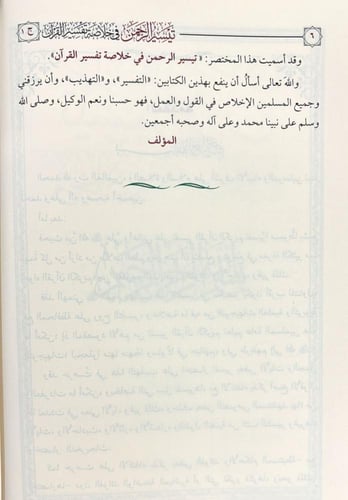 ٦ تيسير الرحمن في خلاصة تفسير القرآن ج١
وقد أسميت هذا المختصر: «تيسير الرحمن في خلاصة تفسير القرآن».
والله تعالى أسأل أن ينفع بهذين الكتابين: «التفسير»، و«التهذيب»، وأن يرزقني
وجميع المسلمين الإخلاص في القول والعمل، فهو حسبنا ونعم الوكيل، وصلى الله
وسلم على نبينا محمد وعلى آله وصحبه أجمعين.
المؤلف